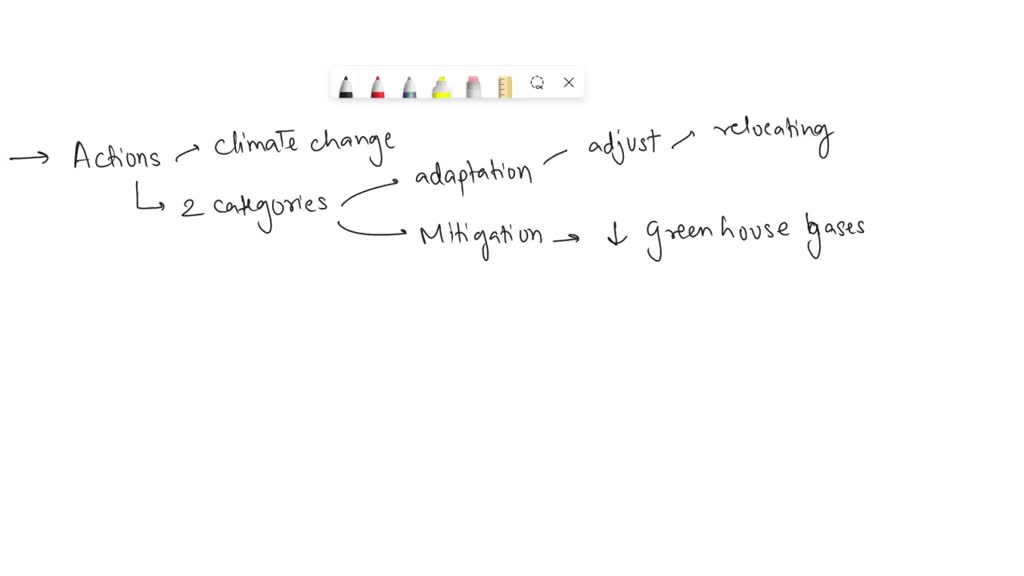 → Actions climate change
↳ 2 categories
adaptation adjust relocating
Mitigation → ↓ greenhouse gases